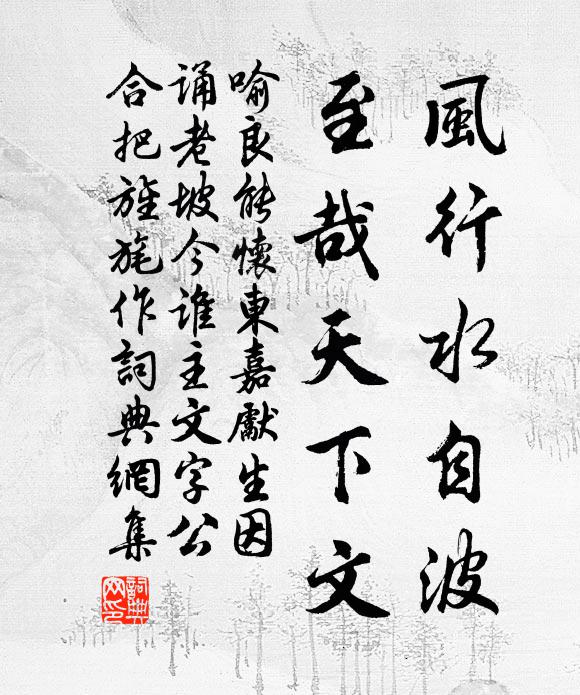 風行水自波
至哉天下文
喻良能懷東嘉獻生因
誦老坡今誰主文字公
合把旌旄作詞典網集
詞典
网印